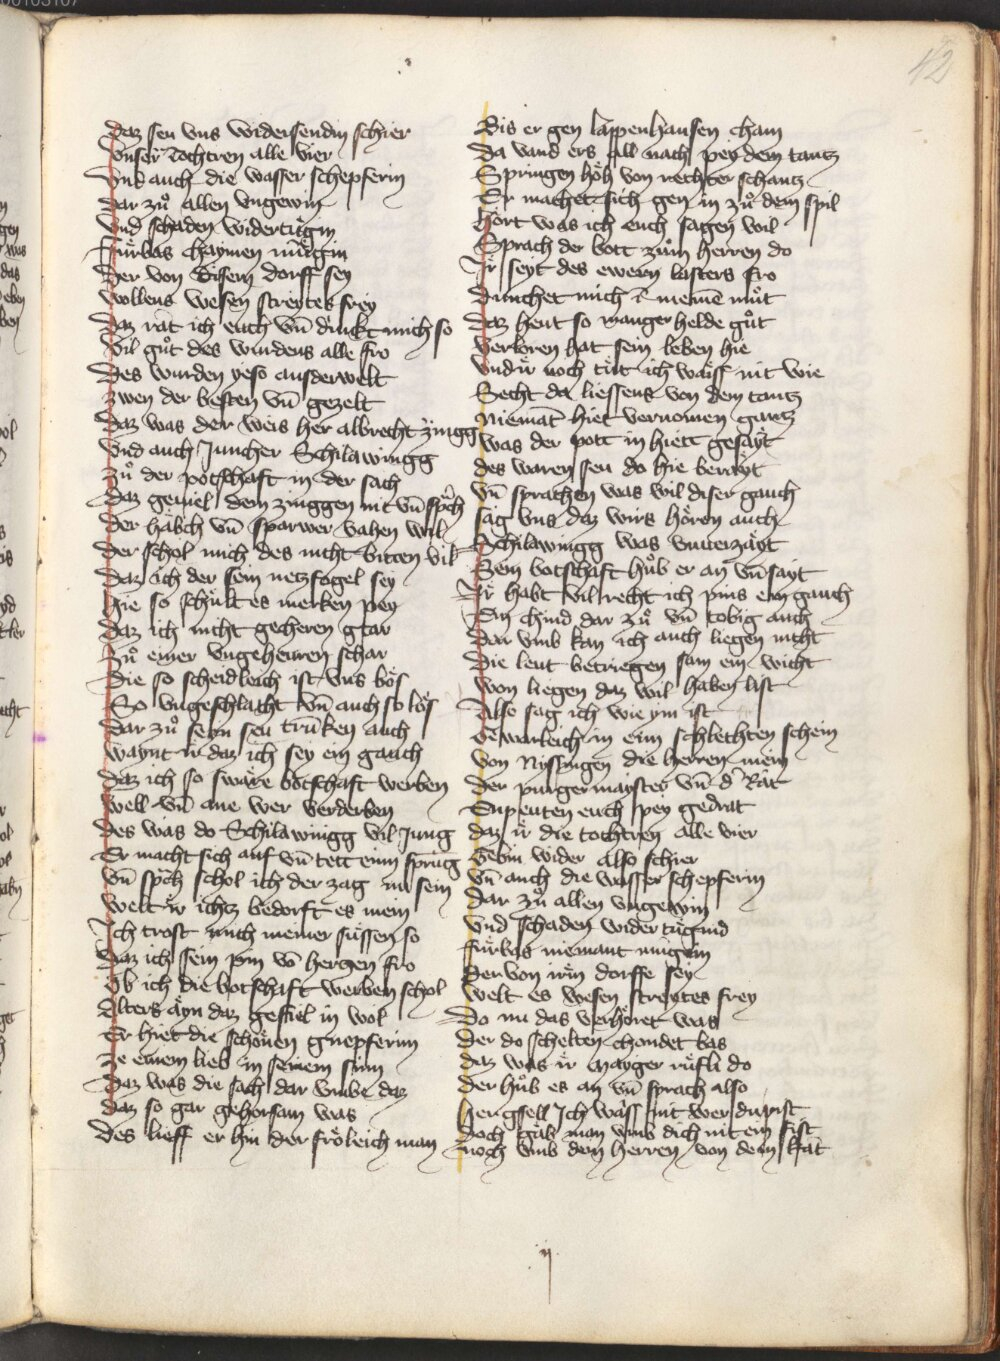 42
Daz seu uns widersendin schier
Unser tochtren alle vier
Und auch die wasser schepferin
Dar zuͦ allen ungewin
Und schaden widertuͤgin
Fuͤrbas chaymen muͤgin
Der von disem dorff sey
Wollens wesen streytes frey
Daz rat ich euch un̄ dunkt mich so
Vil guͦt des wurdens alle fro
Des wurden yeso ausderwelt
Zwen der besten un̄ gezelt
Daz was der weis her albrecht zingg
Und auch Juncher Schilawingg
Zuͦ der potschaft in der sach
Daz geuiel dem zinggen nit un̄ sp͛ch
Der haͤbch un̄ sparwer vahen wil
Der schol mich des nicht bitten vil
Daz ich der sein netzfogel sey
Hie so schuͤlt es merken pey
Daz ich nicht gecheren gtar
Zuͦ einer ungeheuren schar
Die so scheidleich ist uns boͤs
So ungeschlacht un̄ auch so loͤs
Dar zuͦ seyn seu trūken auch
Waynt ir daz ich sey ein gauch
Daz ich so swaͤre botschaft werben
Well un̄ ane wer verderben
Des was do Schilawingg vil Jung
Er macht sich auf un̄ tett einn sprūg
Un̄ sp͛ch schol ich der zag nu sein
Welt ir ichtz bedorft es mein
Ich trost mich meiner fuͤssen so
Daz ich sein pin vō herczen fro
Ob ich die botschaft werben schol
Alters ayn daz gefiel in wol
Er hiet die schoͤnen gnepferinn
Ze einem lieb in seinem sinn
Daz was die sach dar umbe daz
Daz so gar gehorsam was
Des lieff er hin der froͤleich man
Bis er gen lappenhausen cham
Da vand ers all nach pey dem tantz
Springen hoͤh von rechter schantz
Er machet sich gen in zuͦ dem spil
Hoͤrt was ich euch sagen wil
Sprach der bott zuͦm herren do
Ir seyt des ewern lasters fro
Dunchet mich ī meinē muͦt
Daz heut so manger helde guͦt
Verloren hat sein leben hie
Und ir noch tuͤt ich waiss nit wie
Secht da liessens von dem tantz
Niemāt hiet vernomen gantz
Was der pott in hiett gesayt
Des waren seu do hie berayt
Un̄ sprachen was wil diser gauch
Sag uns daz wirs hoͤren auch
Schilawingg was unuerzayt
Sein botschaft huͦb er an un̄ sait
Ir habt vil recht ich pins ein gauch
Ein chind dar zuͦ un̄ tobig auch
Dar umb kan ich auch liegen nicht
Die leut betriegen sam ein wicht
Won liegen daz wil haben list
Also sag ich wie ym ist
Gewarleich in eim schlechten schein
Von Nyssingen die herren mein
Der purgermayster un̄ d͛ Rat
Enpeuten euch pey gedrat
Daz ir die tochtren alle vier
Gebin wider also schier
Un̄ auch die wasser schepferin
Dar zuͦ allen ungewin
Und schaden wider tuͤgind
Fuͤrbas niemant muͤgein
Der von irm dorffe sey
Welt es wesen streytes frey
Do nu das verhoͤret was
Der do schelten chondet bas
Daz was ir mayger ruͤfli do
Der huͦb es an un̄ sprach also
Her gsell Ich waiss nit wer du pist
Doch gaͤb man umb dich nit ein fist
Noch umb den herren von dem Rat
ij